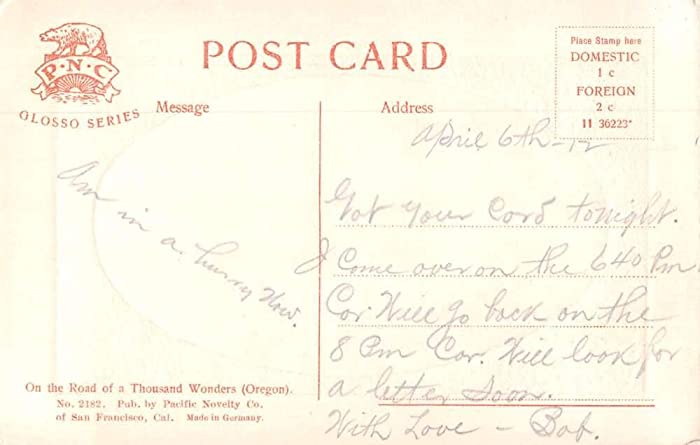 P·N·C
GLOSSO SERIES
POST CARD
Place Stamp here
DOMESTIC
1 c
FOREIGN
2 c
11 36223*
Message
Address
April 6th-12
Am in a hurry Now.
Got your Card tonight.
I Come over on the 640 Pm
Car. Will go back on the
8 Pm Car. Will look for
a letter soon.
With Love - Bob.
On the Road of a Thousand Wonders (Oregon).
No. 2182. Pub. by Pacific Novelty Co.
of San Francisco, Cal. Made in Germany.